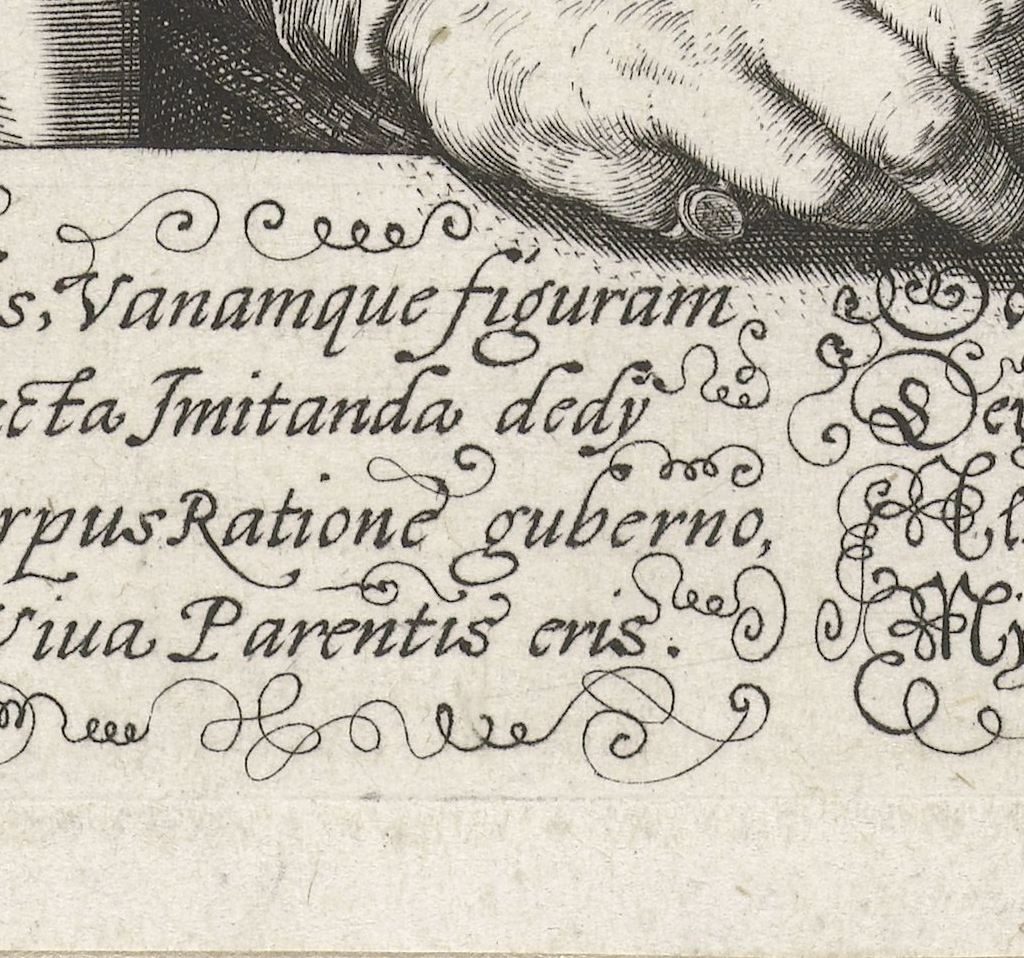 s, Vanamque figuram
cta Jmitanda dedÿ
rpus Ratione guberno,
Viua Parentis eris.